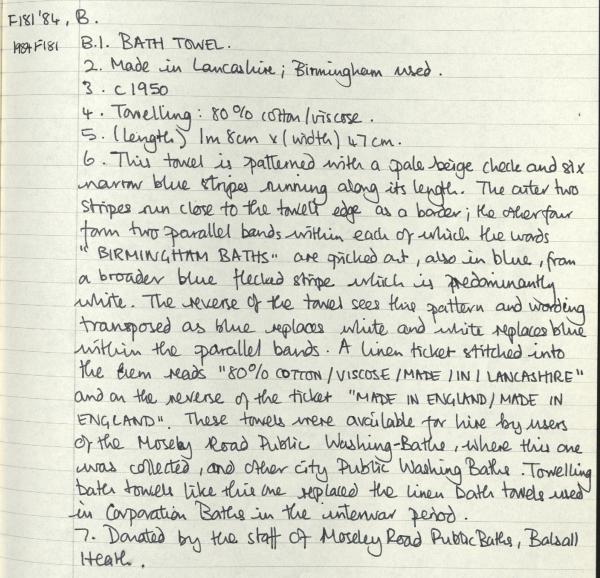 F181 '84, B.
1984F181 B.1. BATH TOWEL.
2. Made in Lancashire; Birmingham used.
3. c 1950
4. Towelling: 80% cotton/viscose.
5. (length) 1m 8cm x (width) 47cm.
6. This towel is patterned with a pale beige check and six
narrow blue stripes running along its length. The outer two
stripes run close to the towel's edge as a border; the other four
form two parallel bands within each of which the words
"BIRMINGHAM BATHS" are picked out, also in blue, from
a broader blue flecked stripe which is predominantly
white. The reverse of the towel sees this pattern and wording
transposed as blue replaces white and white replaces blue
within the parallel bands. A linen ticket stitched into
the hem reads "80% COTTON/VISCOSE/MADE/IN/LANCASHIRE"
and on the reverse of the ticket "MADE IN ENGLAND/MADE IN
ENGLAND". These towels were available for hire by users
of the Mosely Road Public Washing-Baths, where this one
was collected, and other city Public Washing Baths. Towelling
bath towels like this one replaced the linen bath towels used
in Corporation Baths in the interwar period.
7. Donated by the staff of Moseley Road Public Baths, Balsall
Heath.